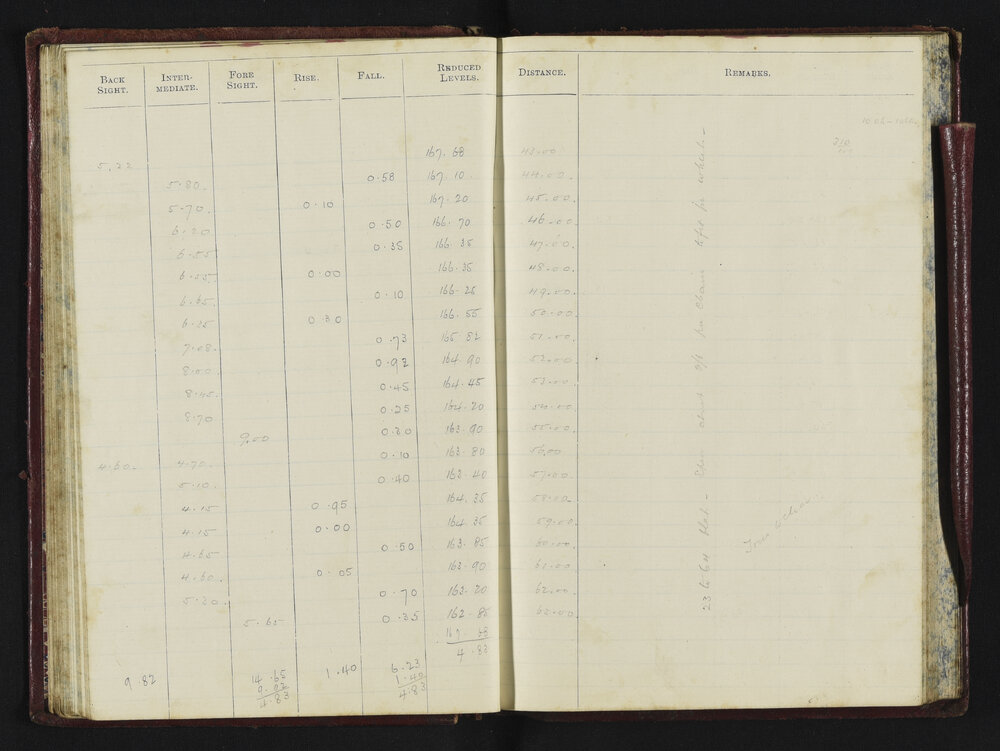 BACK SIGHT. INTER-MEDIATE. FORE SIGHT. RISE. FALL. REDUCED LEVELS. DISTANCE. REMARKS.
5.22 167.68 43.00
5.80 0.58 167.10 44.00
5.70 0.10 167.20 45.00
6.20 0.50 166.70 46.00
6.55 0.35 166.35 47.00
6.55 0.00 166.35 48.00
6.65 0.10 166.25 49.00
6.35 0.30 166.55 50.00
7.08 0.73 165.82 51.00
8.00 0.92 164.90 52.00
8.45 0.45 164.45 53.00
8.70 0.25 164.20 54.00
9.00 0.30 163.90 55.00
4.60 4.70 0.10 163.80 56.00
5.10 0.40 163.40 57.00
4.15 0.95 164.35 58.00
4.15 0.00 164.35 59.00
4.65 0.50 163.85 60.00
4.60 0.05 163.90 61.00
5.30 0.70 163.20 62.00
5.65 0.35 162.85 63.00
167.68
4.83
9 82 14.65 1.40 6.23
9.82 1.40
4.83 4.83
23 to 64 flat